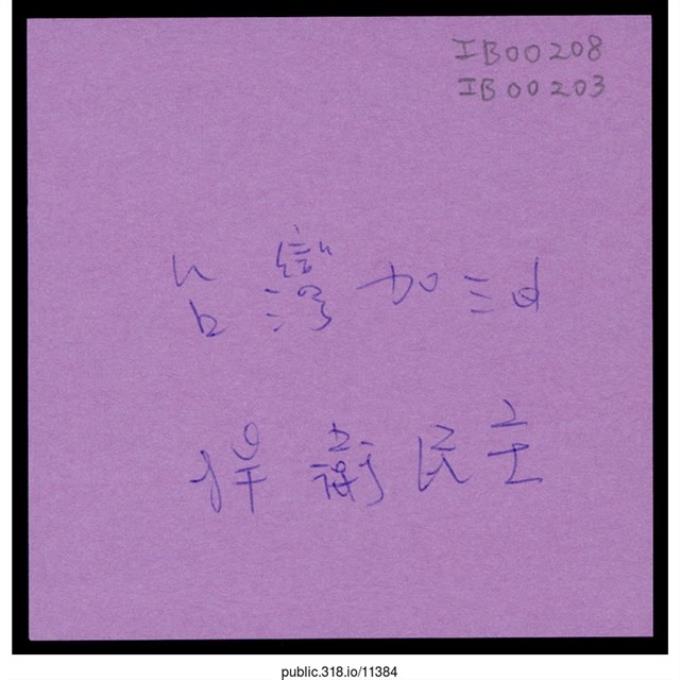 IB00208
IB00203
台灣加油
捍衛民主
public.318.io/11384